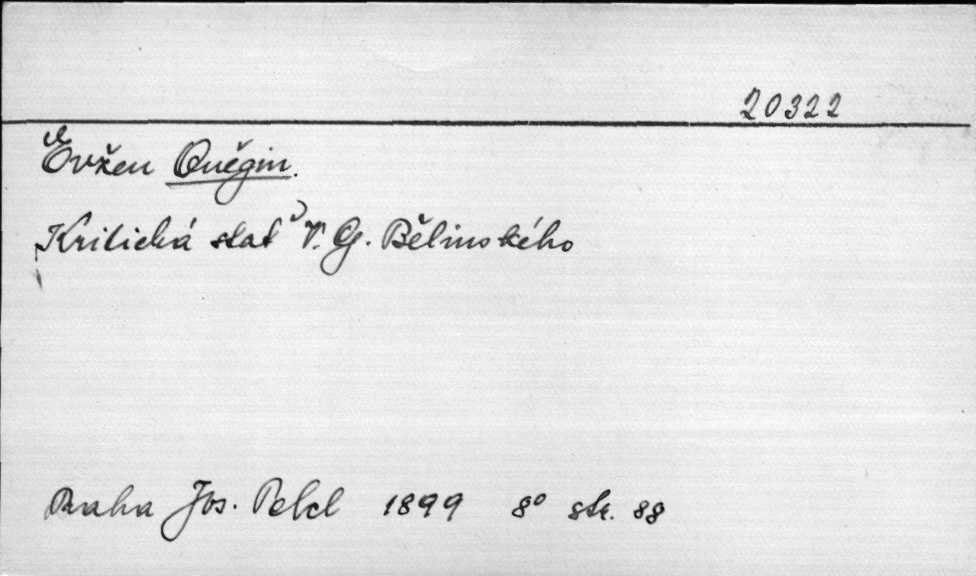 20322
Evžen Oněgin.
Kritická stať V. G. Bělinského
Praha Jos. Pelcl 1899 8° str. 88